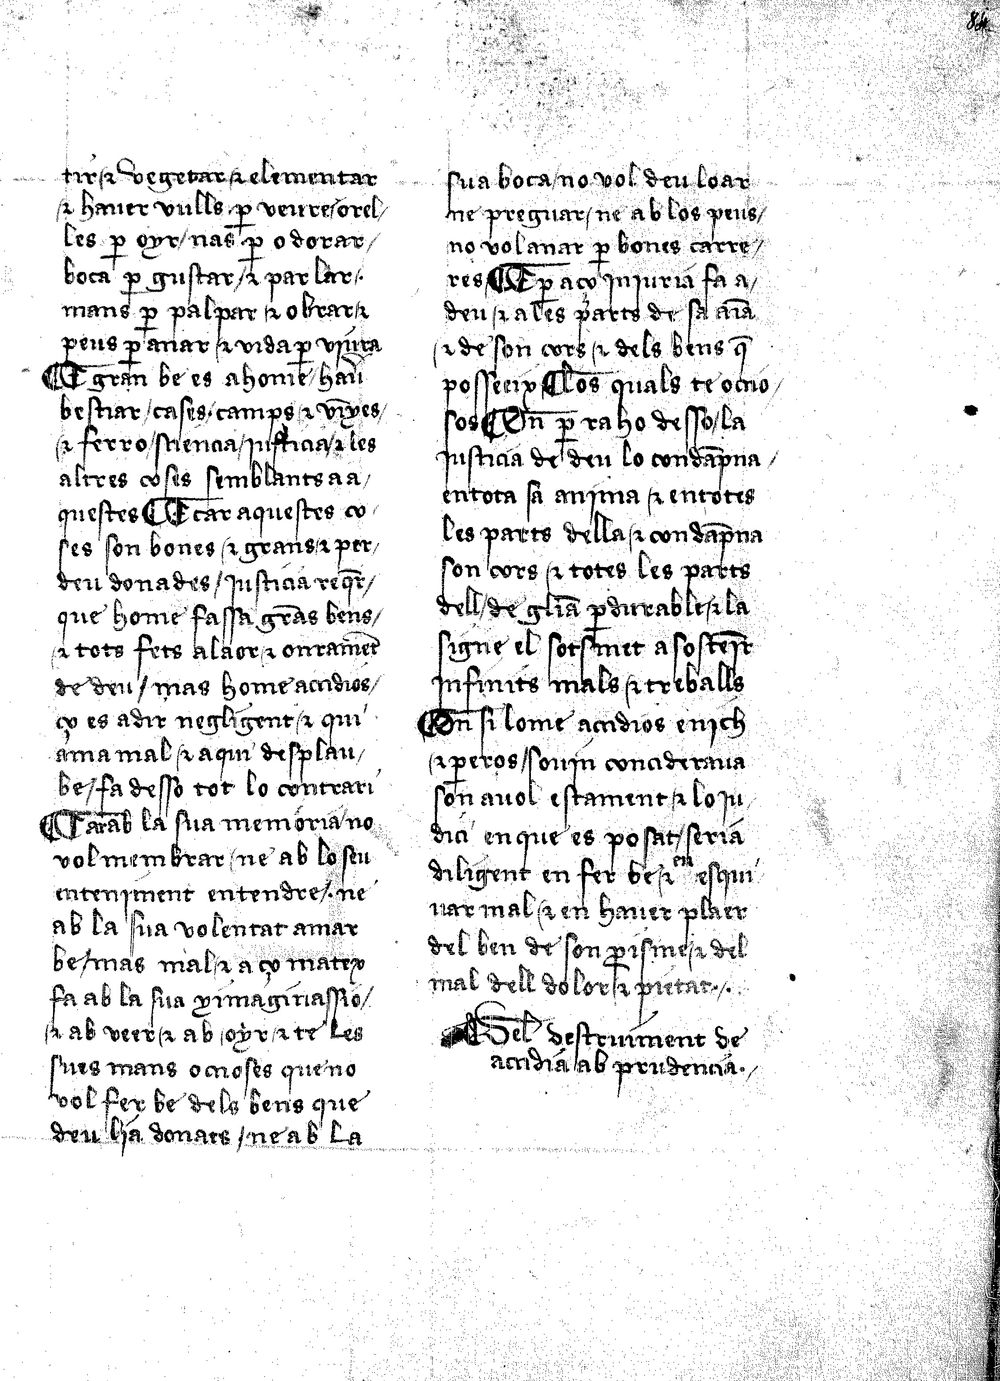 84
tir / ⁊ vegetar / ⁊ elementar
⁊ hauer vulls p̱ veure / orel /
les p̱ oyr / nas p̱ odorar /
boca p̱ gustar / ⁊ parlar /.
mans p̱ palpar ⁊ obrar ⁊
peus p̱ anar ⁊ vida p̱ viura
¶ E gran be es a home / hau̅
bestiar / cases / camps ⁊ viyes /
⁊ ferro / sciencia / justicia / ⁊ les
altres coses semblants a a /
questes ¶ E car aquestes co /
ses son bones ⁊ grans ⁊ per /
deu donades / justicia reqr̅ /
que home fassa gra̅s bens /
⁊ tots fets a laor ⁊ onramet̅
de deu / mas home accidios /
ço es adir negligent ⁊ qui
ama mal ⁊ aqui desplau /
be / fa desso tot lo contrari
¶ Car ab la sua memoria no
vol membrar / ne ab lo seu
entenjment entendre /. ne
ab la sua volentat amar
be / mas mal ⁊ a ço matex
fa ab la sua ymaginassio /
⁊ ab veer ⁊ ab oyr ⁊ te les
sues mans ocioses que no
vol fer be dels bens que
deu li̅a donats / ne ab la
sua boca / no vol deu loar
ne preguar / ne ab los peus /
no vol anar p̱ bones carre /
res ¶ E p̱ aço injuria fa a /
deu ⁊ a les parts de sa ai̅a
⁊ de son cors ⁊ dels bens q̅
posseeix ¶ Los quals te ocio /
sos ¶ On p̱ raho desso / la
justicia de deu lo condap̅na /
en tota sa anjma ⁊ en totes
les parts della ⁊ condap̅na
son cors ⁊ totes les parts
dell / de gli̅a p̱durable / ⁊ la
signe el sotsmet a sosteir̅
jnfinits mals ⁊ treballs
¶ On si lome accidios enich
⁊ p̱eros / souin conciderava
son auol estament ⁊ lo ju /
dici en que es posat / seria
diligent en fer be / ⁊ en esqui
uar mal ⁊ en hauer plaer
del ben de son p̱isme / ⁊ del
mal dell dolor ⁊ pietat ·/.
¶ Del destruiment de
accidia ab prudencia. /